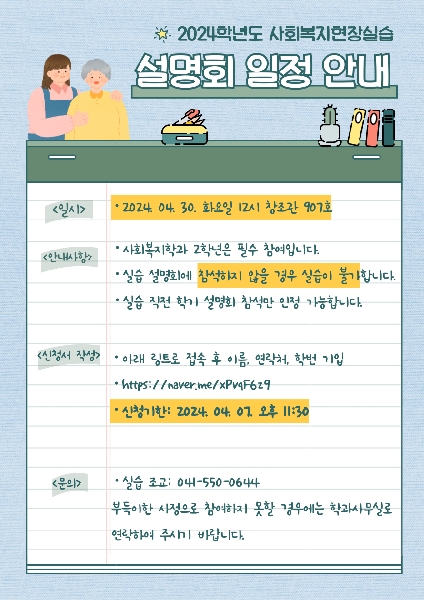 2024학년도 사회복지현장실습
설명회 일정 안내
<일시>
• 2024. 04. 30. 화요일 12시 창조관 907호
<안내사항>
• 사회복지학과 2학년은 필수 참여입니다.
• 실습 설명회에 참석하지 않을 경우 실습이 불가합니다.
• 실습 직전 학기 설명회 참석만 인정 가능합니다.
<신청서 작성>
• 아래 링트로 접속 후 이름, 연락처, 학번 기입
• https://naver.me/xPvqF6z9
• 신청기한: 2024. 04. 07. 오후 11:30
<문의>
• 실습 조교: 041-550-0644
부득이한 사정으로 참여하지 못할 경우에는 학과사무실로
연락하여 주시기 바랍니다.